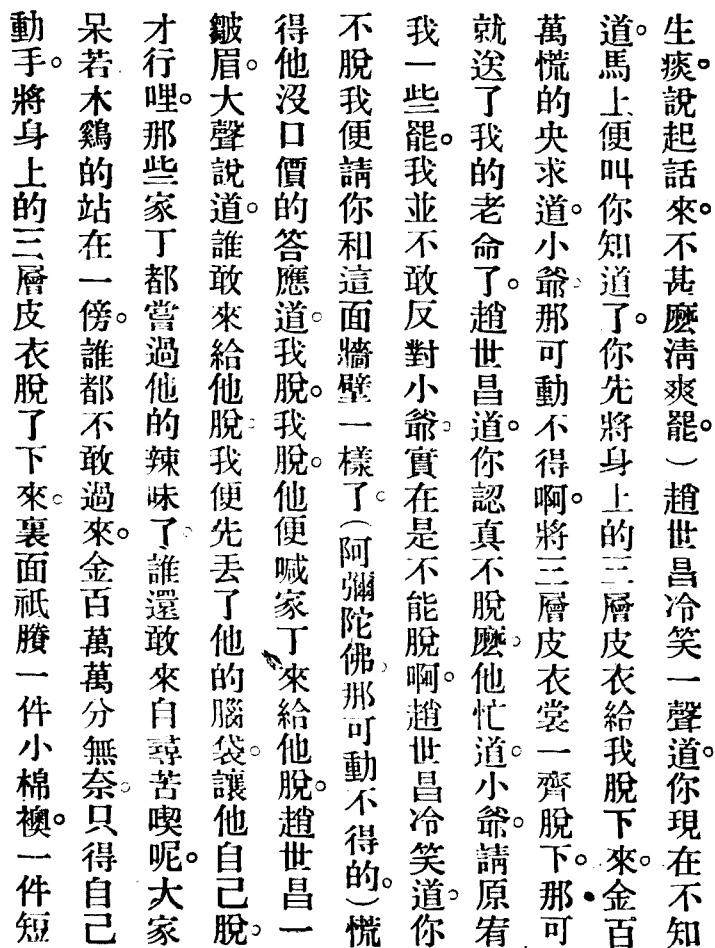 生痰。說起話來。不甚麼淸爽罷。）趙世昌冷笑一聲道。你現在不知
道。馬上便叫你知道了。你先將身上的三層皮衣給我脫下來。金百
萬慌的央求道。小爺那可動不得啊。將三層皮衣裳一齊脫下。那可
就送了我的老命了。趙世昌道。你認真不脫麼。他忙道。小爺。請原宥
我一些罷。我並不敢反對小爺。實在是不能脫啊。趙世昌冷笑道。你
不脫我便請你和這面牆壁一樣了。（阿彌陀佛。那可動不得的。）慌
得他沒口價的答應道。我脫。我脫。他便喊家丁來給他脫。趙世昌一
皺眉。大聲說道。誰敢來給他脫。我便先丟了他的腦袋。讓他自己脫。
才行哩。那些家丁都嘗過他的辣味了。誰還敢來自尋苦喫呢。大家
呆若木鷄的站在一傍。誰都不敢過來。金百萬萬分無奈。只得自己
動手。將身上的三層皮衣脫了下來。裏面祇賸一件小棉襖。一件短